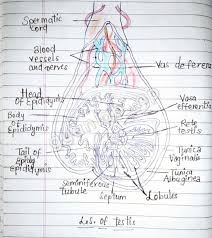 Spermatic
Cord
Blood
vessels
and nerves
Vas deferens
Head
OF Epididymis
Vasa
efferentia
Body
OF
Epididymis
Rete
testis
Tail of
Epididymis
Tunica
Vaginalis
Tunica
Albuginea
Seminiferous
tubule
Septum
Lobules
L.S. OF testis